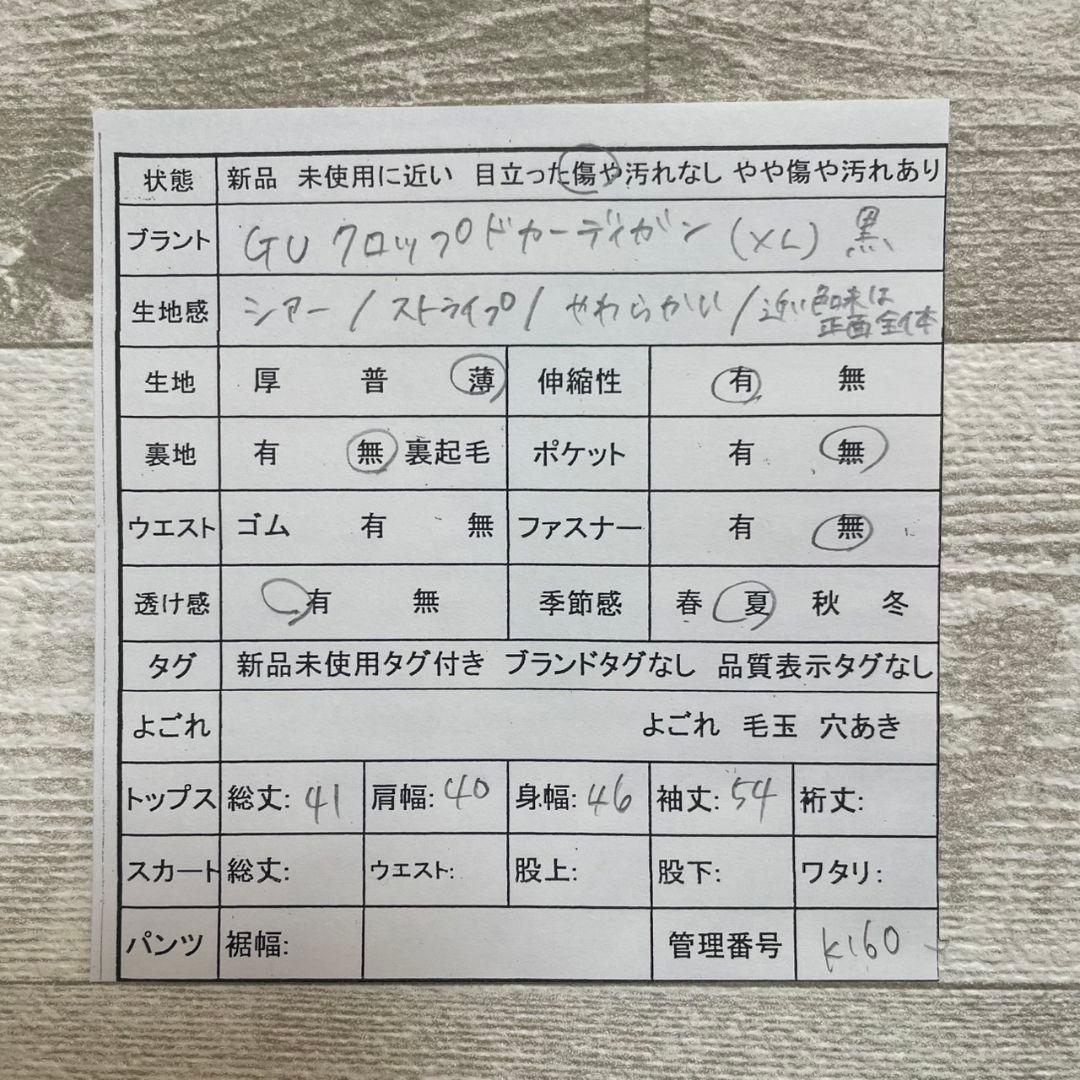 状態 新品 未使用に近い 目立った傷や汚れなし やや傷や汚れあり
ブラント GU クロップドカーディガン (XL) 黒
生地感 シアー / ストライプ / やわらかい / 近い色味は
正面全体
生地 厚 普 薄 伸縮性 有 無
裏地 有 無 裏起毛 ポケット 有 無
ウエスト ゴム 有 無 ファスナー 有 無
透け感 有 無 季節感 春 夏 秋 冬
タグ 新品未使用タグ付き ブランドタグなし 品質表示タグなし
よごれ よごれ 毛玉 穴あき
トップス 総丈: 41 肩幅: 40 身幅: 46 袖丈: 54 裄丈:
スカート 総丈: ウエスト: 股上: 股下: ワタリ:
パンツ 裾幅: 管理番号 K160